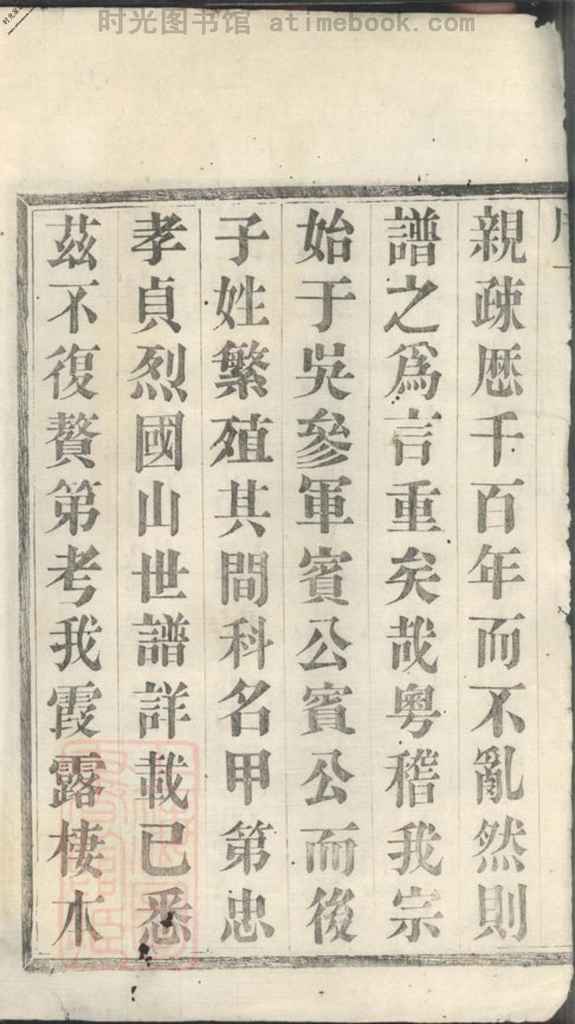 时光图书馆 atimebook.com
親疎厯千百年而不亂然則
譜之爲言重矣哉粤稽我宗
始于吳參軍賓公賓公而後
子姓繁殖其間科名甲第忠
孝貞烈國山世譜詳載已悉
茲不復贅第考我霞露棲木